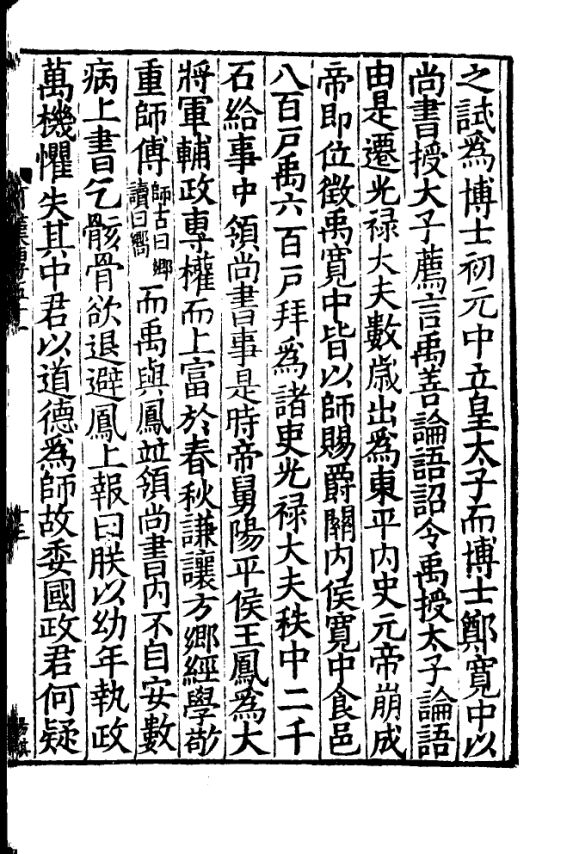 之試爲博士初元中立皇太子而博士鄭寬中以
尚書授大子薦言禹善論語詔令禹授太子論語
由是遷光禄大夫數歳出爲東平内史元帝崩成
帝即位徵禹寬中皆以師賜爵關内侯寬中食邑
八百戸禹六百戸拜爲諸吏光禄大夫秩中二千
石給事中領尚書事是時帝舅陽平侯王鳳爲大
將軍輔政專權而上富於春秋謙讓方鄉經學敬
重師傅師古曰鄉讀曰嚮而禹與鳳並領尚書内不自安數
病上書乞骸骨欲退避鳳上報曰朕以幼年執政
萬機懼失其中君以道德爲師故委國政君何疑